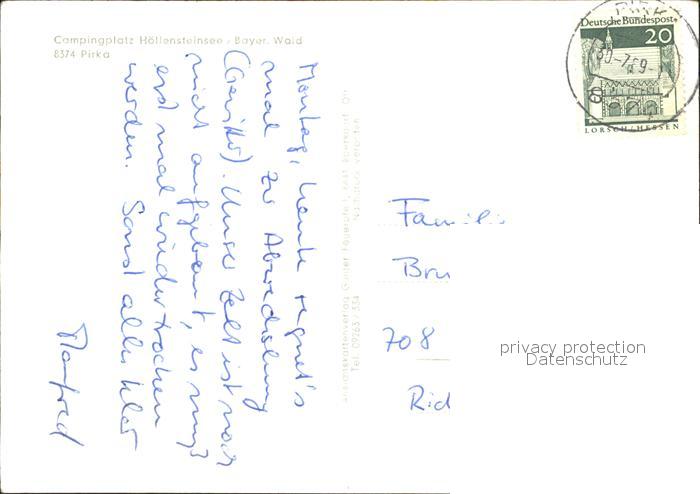 Campingplatz Höllensteinsee, Bayer. Wald
8374 Pirka
Montag, heute regnet's
mal zur Abwechslung
(Gewitter). Unser Zelt ist noch
nicht aufgebaut, es muß
erst mal wieder trocken
werden. Sonst alles klar
Manfred
Ansichtskartenverlag Günter
Tel. 09263 / 334
Nachdruck verboten
Deutsche Bundespost
20
LORSCH/HESSEN
Familie
Bru
708
Rid
privacy protection
Datenschutz